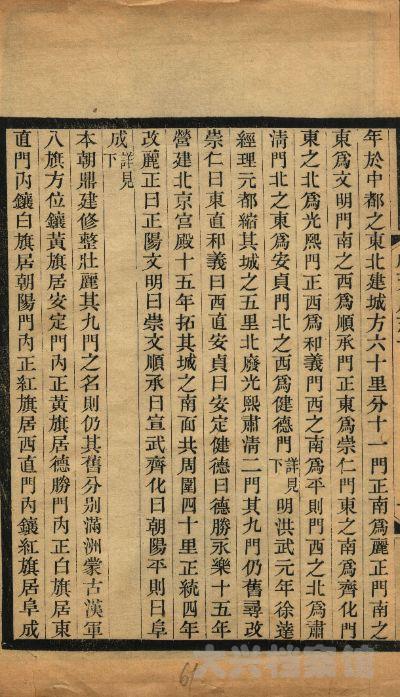 年於中都之東北建城方六十里分十一門正南爲麗正門南之
東爲文明門南之西爲順承門正東爲崇仁門東之南爲齊化門
東之北爲光熙門正西爲和義門西之南爲平則門西之北爲肅
清門北之東爲安貞門北之西爲健德門詳見下明洪武元年徐達
經理元都縮其城之五里北廢光熙肅清二門其九門仍舊尋改
崇仁曰東直和義曰西直安貞曰安定健德曰德勝永樂十五年
營建北京宮殿十五年拓其城之南面共周圍四十里正統四年
改麗正曰正陽文明曰崇文順承曰宣武齊化曰朝陽平則曰阜
成詳見下
本朝鼎建修整壯麗其九門之名則仍其舊分别滿洲蒙古漢軍
八旗方位鑲黃旗居安定門內正黃旗居德勝門內正白旗居東
直門內鑲白旗居朝陽門內正紅旗居西直門內鑲紅旗居阜成
大兴档案馆